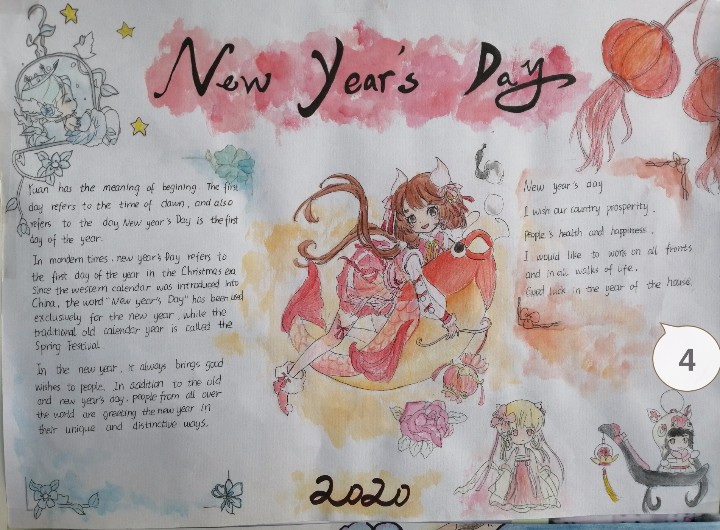 New Year's Day
Yuan has the meaning of begining. The first
day refers to the time of dawn, and also
refers to the day New year's Day is the first
day of the year.
In mondern times, new year's Day refers to
the first day of the year in the Christmes era
Since the western calendar was introduced into
China, the word "New year's Day" has been used
exclusively for the new year, while the
traditional old calendar year is called the
Spring Festival.
In the new year, it always brings good
wishes to people. In addition to the old
and new year's day, people from all over
the world are greeting the new year in
their unique and distinctive ways.
New year's day
I wish our country prosperity,
People's health and happiness,
I would like to work on all fronts
and in all walks of life,
Good luck in the year of the house
4
2020